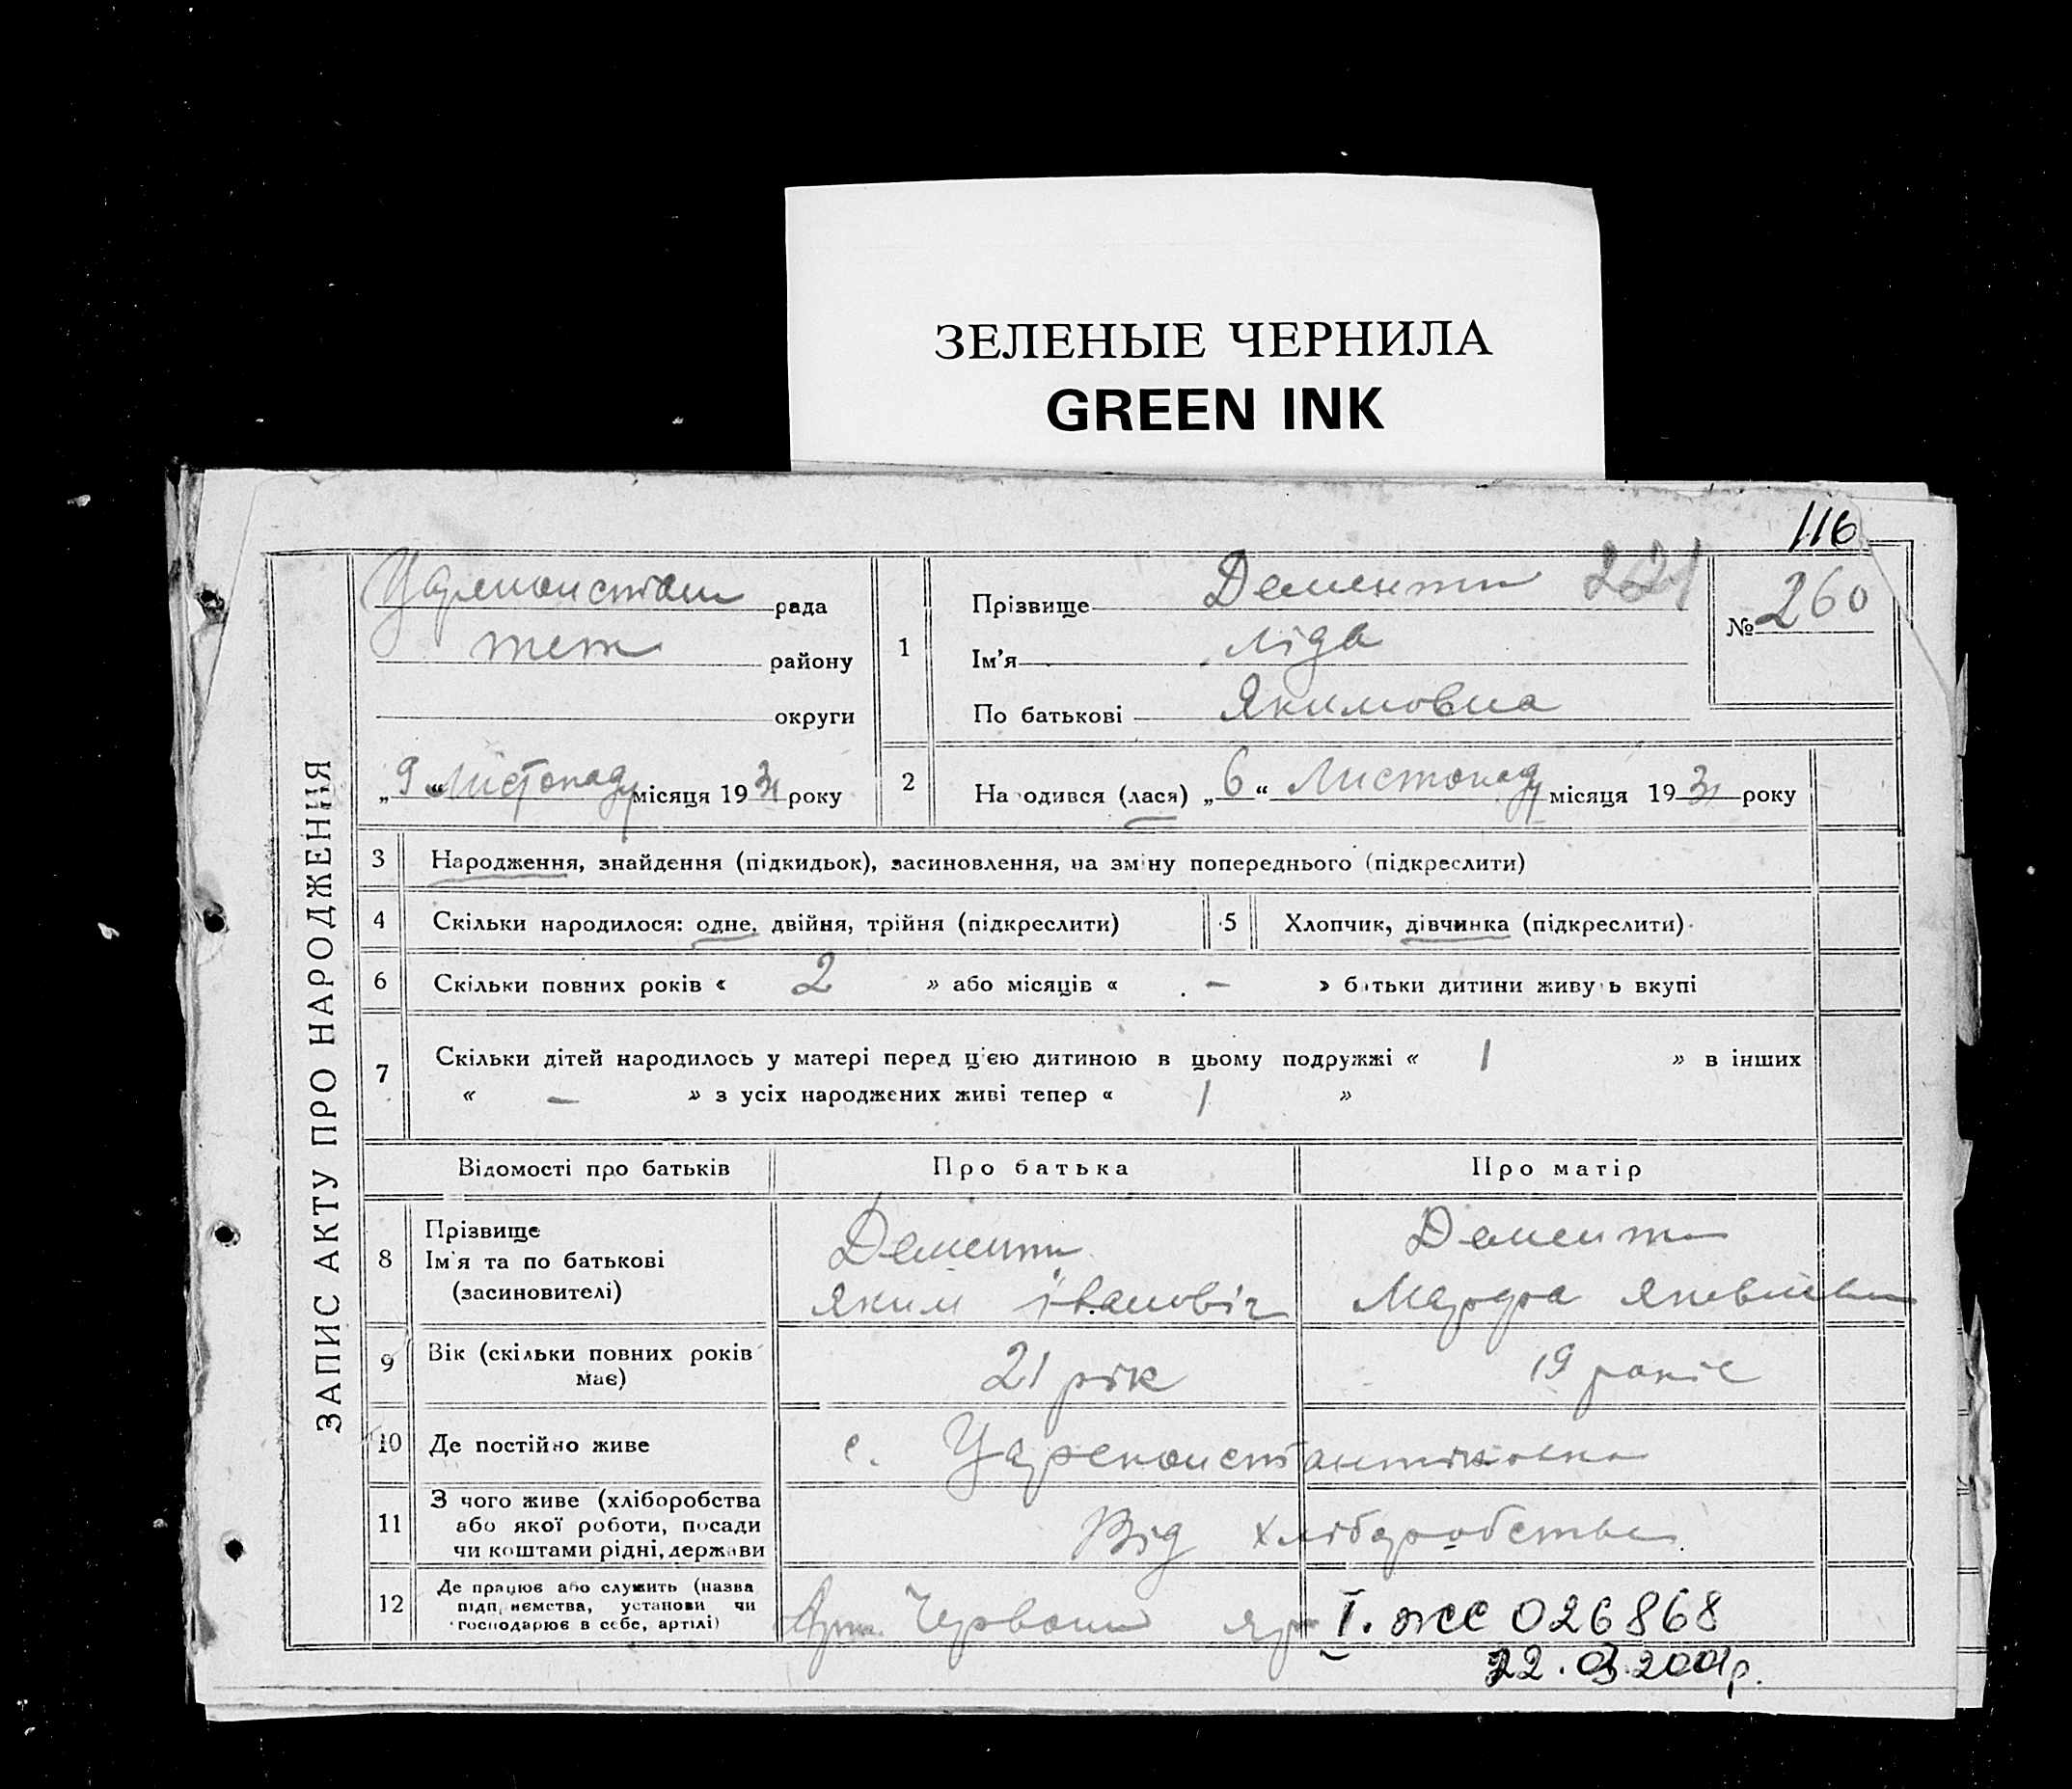 ЗЕЛЕНЫЕ ЧЕРНИЛА
GREEN INK
116
ЗАПИС АКТУ ПРО НАРОДЖЕННЯ
рада
району
округи
„9“ Листопаду місяця 1931 року
1
Прізвище Дементи 221
Ім'я Ліда
По батькові Якимовна
№ 260
2
Народився (лася) „6“ Листопаду місяця 1931 року
3 Народження, знайдення (підкидьок), засиновлення, на зміну попереднього (підкреслити)
4 Скільки народилося: одне, двійня, трійня (підкреслити)
5 Хлопчик, дівчинка (підкреслити)
6 Скільки повних років « 2 » або місяців « – » батьки дитини живуть вкупі
7 Скільки дітей народилось у матері перед ц'єю дитиною в цьому подружжі « 1 » в інших
« – » з усіх народжених живі тепер « 1 »
Відомості про батьків
Про батька
Про матір
8
Прізвище
Ім'я та по батькові
(засиновителі)
Дементи
Яким Івановіч
Дементи
9
Вік (скільки повних років
має)
21 рік
19 років
10 Де постійно живе
с. Цареконстантіновка
11
З чого живе (хліборобства
або якої роботи, посади
чи коштами рідні, держави
Від хліборобства
12
Де працює або служить (назва
підприємства, установи чи
господарює в себе, артілі)
Арт. Червоний яр
I. ЖС 026868
22.03.2001р.